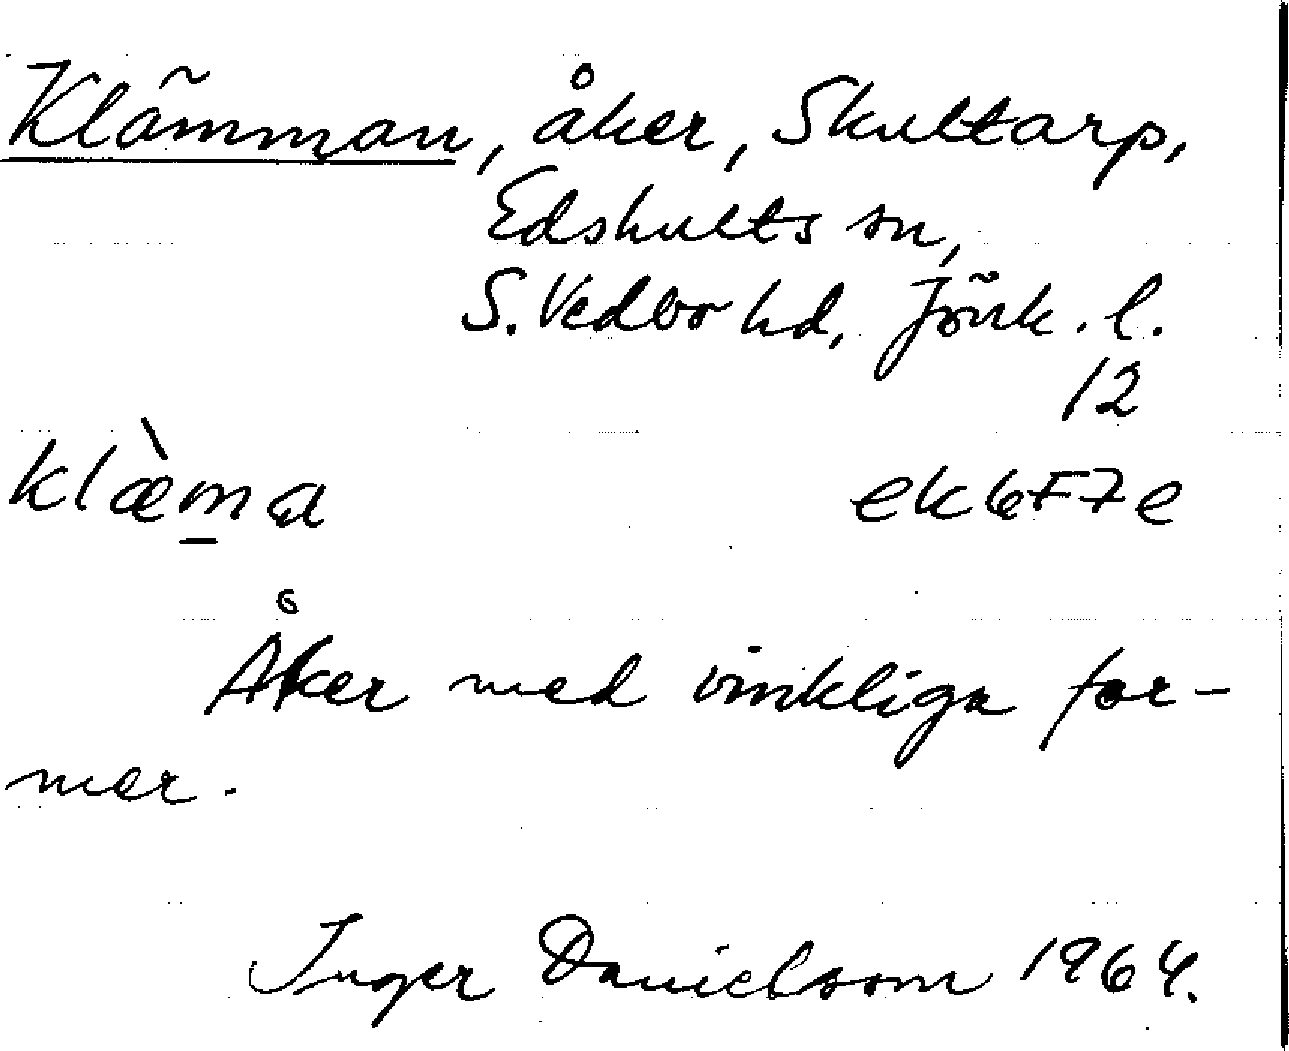 Klämman, åker, Skultarp,
Edshults sn,
S. Vedbo hd, Jönk. l.
12
klæ̀m̲a ek6F7e
Åker med vinkliga for-
mer.
Inger Danielsson 1964.